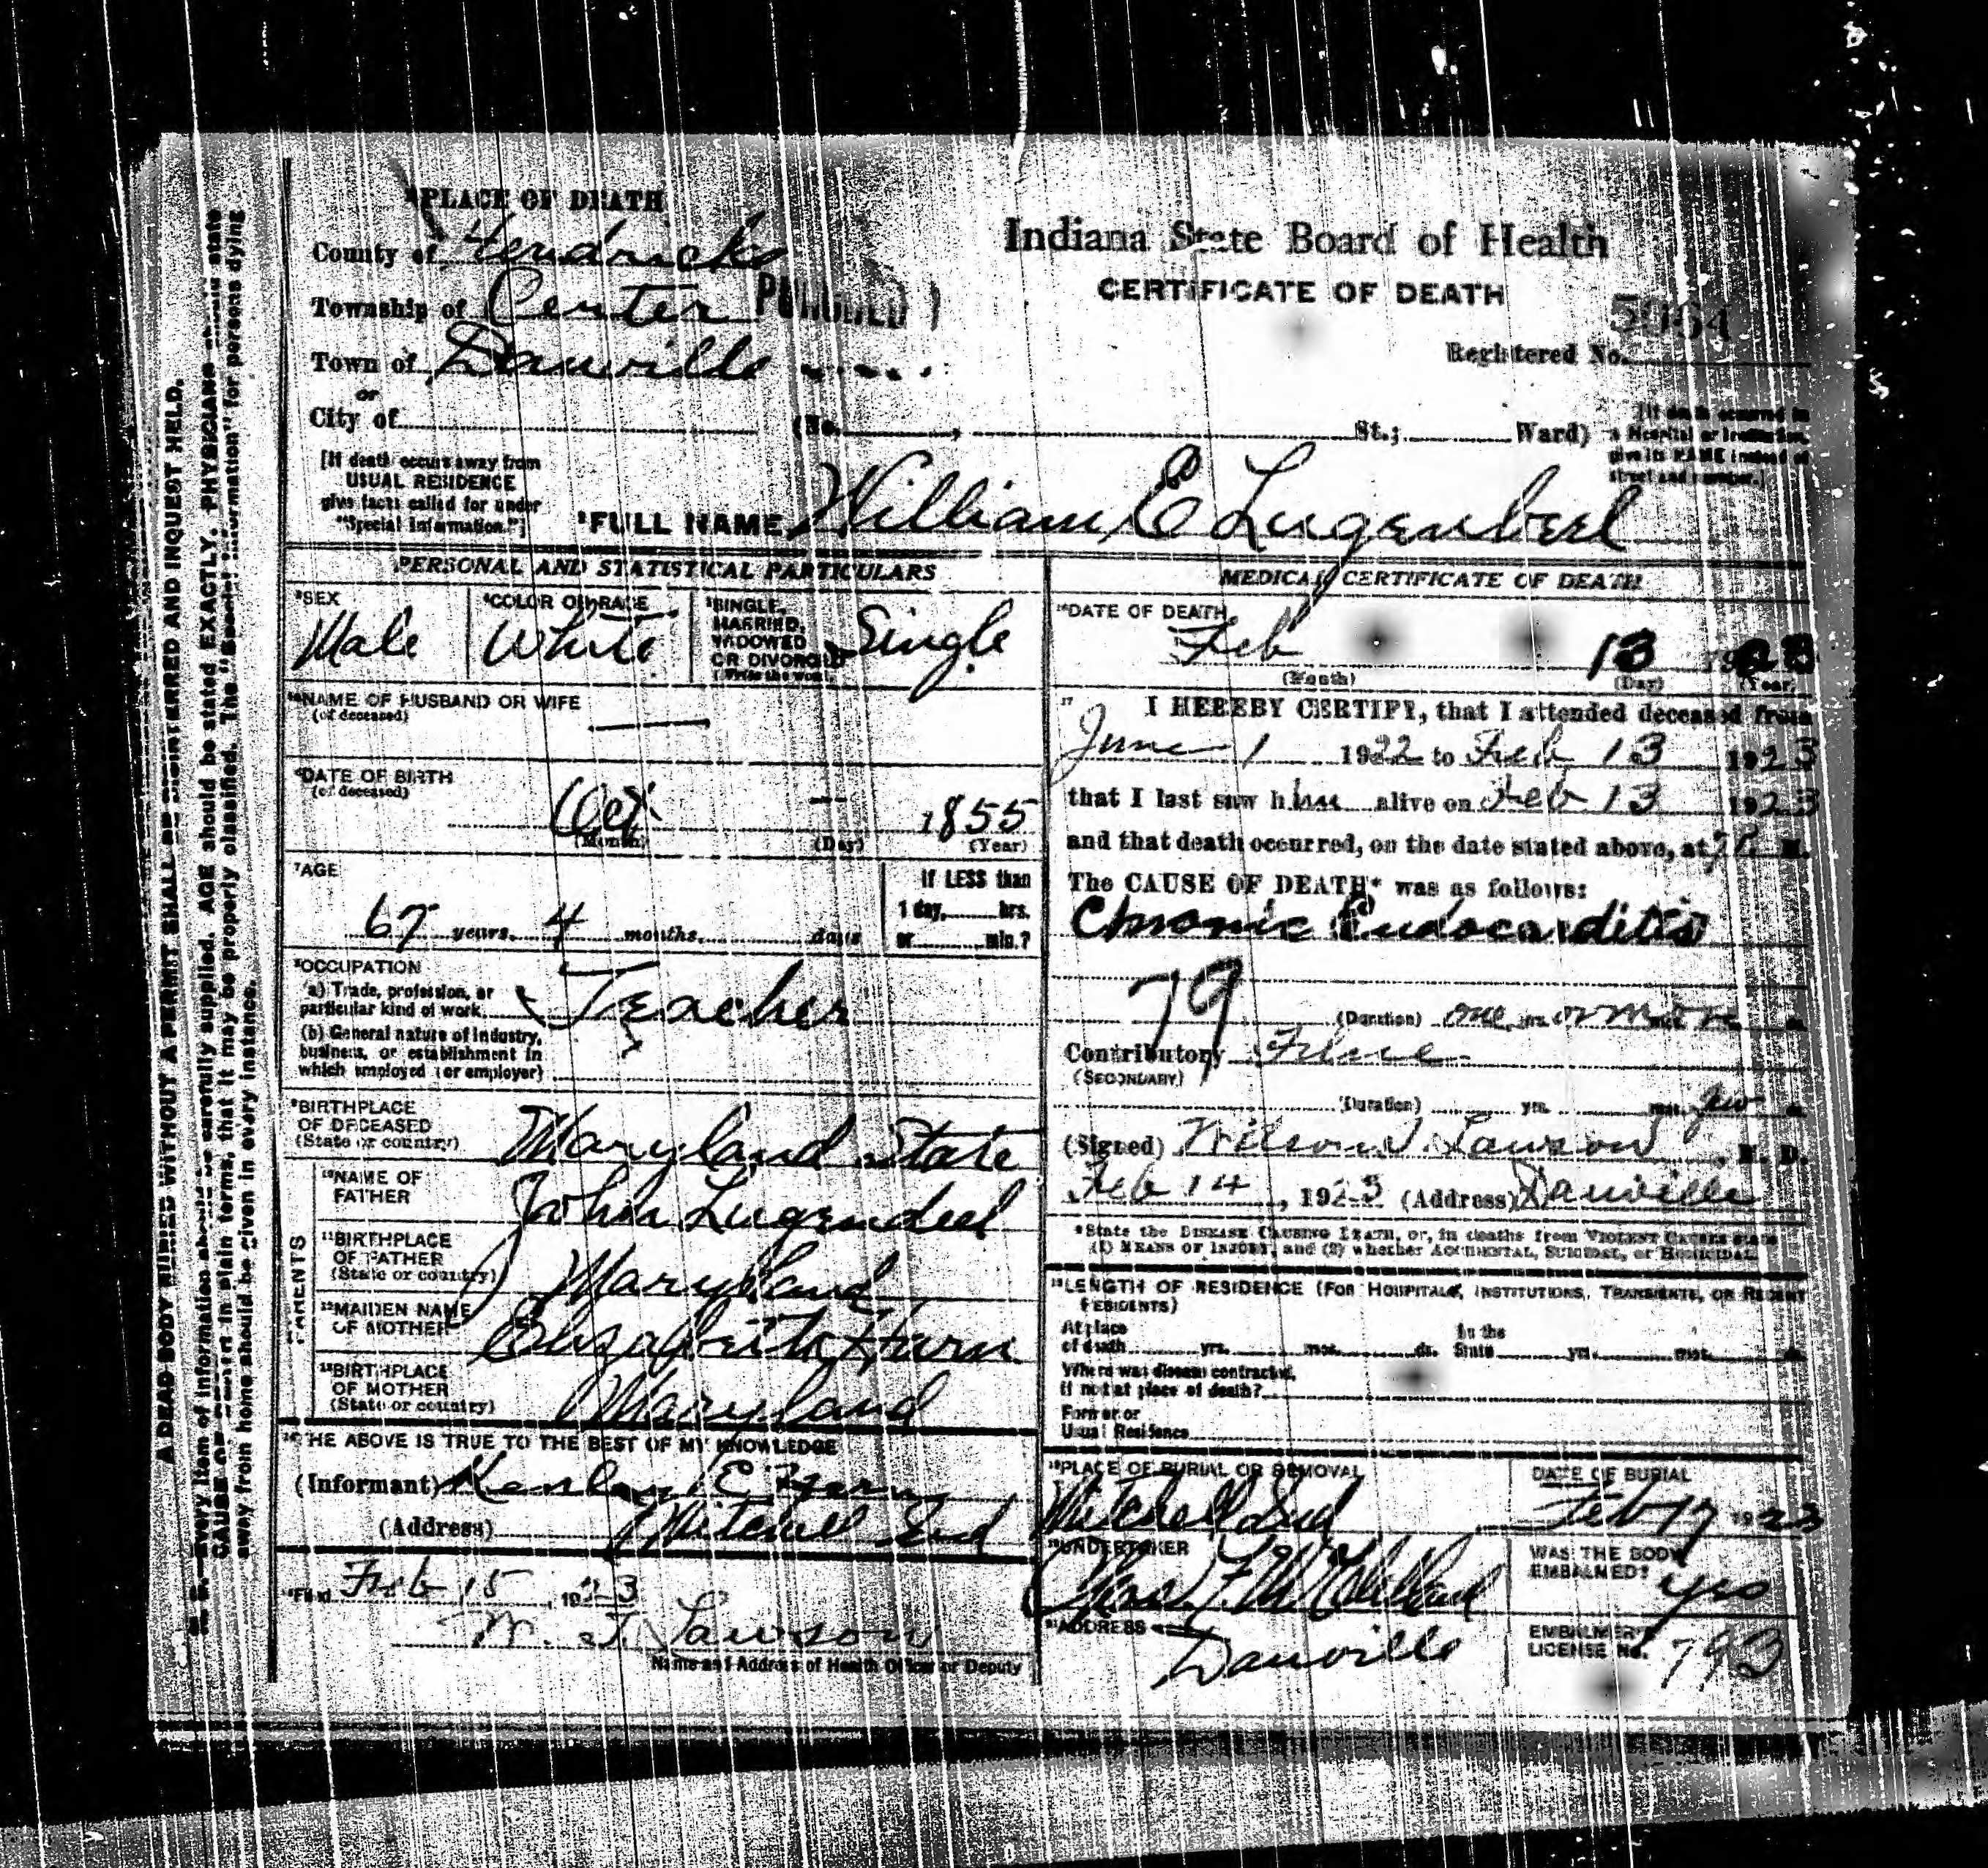 PLACE OF DEATH
County of Hendricks
Township of Center
Town of Danville
or
City of
(No. , St.; Ward)
Indiana State Board of Health
CERTIFICATE OF DEATH
Registered No.
[If death occurred in
a Hospital or Institution,
give its NAME instead of
street and number.]
[If death occurs away from
USUAL RESIDENCE
give facts called for under
"Special information."]
FULL NAME William E Lugenbeel
PERSONAL AND STATISTICAL PARTICULARS
SEX
Male
COLOR OR RACE
White
SINGLE,
MARRIED,
WIDOWED
OR DIVORCED
(Write the word)
Single
NAME OF HUSBAND OR WIFE
(of deceased)
DATE OF BIRTH
(of deceased)
Oct — 1855
(Month) (Day) (Year)
7AGE
67 years, 4 months, days
If LESS than
1 day, hrs.
or min.?
OCCUPATION
(a) Trade, profession, or
particular kind of work
Teacher
(b) General nature of industry,
business, or establishment in
which employed (or employer)
BIRTHPLACE
OF DECEASED
(State or country)
Maryland State
PARENTS
10NAME OF
FATHER
John Lugenbeel
11BIRTHPLACE
OF FATHER
(State or country)
Maryland
12MAIDEN NAME
OF MOTHER
Elizabeth Hurn
13BIRTHPLACE
OF MOTHER
(State or country)
Maryland
THE ABOVE IS TRUE TO THE BEST OF MY KNOWLEDGE
(Informant) E
(Address) Mitchell Ind
Filed Feb 15, 1923
W. T. Lawson
Name and Address of Health Officer or Deputy
MEDICAL CERTIFICATE OF DEATH
16DATE OF DEATH
Feb 13 1923
(Month) (Day) (Year)
17 I HEREBY CERTIFY, that I attended deceased from
June 1 1922 to Feb 13 1923
that I last saw him alive on Feb 13 1923
and that death occurred, on the date stated above, at M.
The CAUSE OF DEATH* was as follows:
Chronic Endocarditis
79
(Duration) one yrs. or more
Contributory
(SECONDARY)
(Duration) yrs. mos. few ds.
(Signed) Wilson T. Lawson, M. D.
Feb 14, 1923 (Address) Danville
*State the DISEASE CAUSING DEATH, or, in deaths from VIOLENT CAUSES state
(1) MEANS OF INJURY; and (2) whether ACCIDENTAL, SUICIDAL, or HOMICIDAL.
18LENGTH OF RESIDENCE (FOR HOSPITALS, INSTITUTIONS, TRANSIENTS, OR RECENT
RESIDENTS)
At place
of death yrs. mos. ds.
In the
State yrs. mos. ds.
Where was disease contracted,
if not at place of death?
Former or
Usual Residence
19PLACE OF BURIAL OR REMOVAL
Mitchell Ind
DATE OF BURIAL
Feb 17 1923
20UNDERTAKER
WAS THE BODY
EMBALMED? yes
ADDRESS
Danville
EMBALMER'S
LICENSE No. 793
A DEAD BODY BURIED WITHOUT A PERMIT SHALL BE DISINTERRED AND INQUEST HELD.
N. B.—Every item of information should be carefully supplied. AGE should be stated EXACTLY. PHYSICIANS should state
CAUSE OF DEATH in plain terms, that it may be properly classified. The "Special information" for persons dying
away from home should be given in every instance.